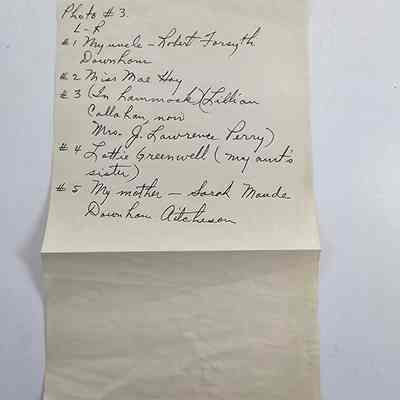 Photo # 3.
L - R
# 1 My uncle - Robert Forsyth
Downham
# 2 Miss Mae Hoy
# 3 (In hammock) (Lillian
Callahan, now
Mrs. J. Lawrence Perry)
# 4 Lottie Greenwell (my aunt's
sister)
# 5 My mother - Sarah Maude
Downham Aitcheson